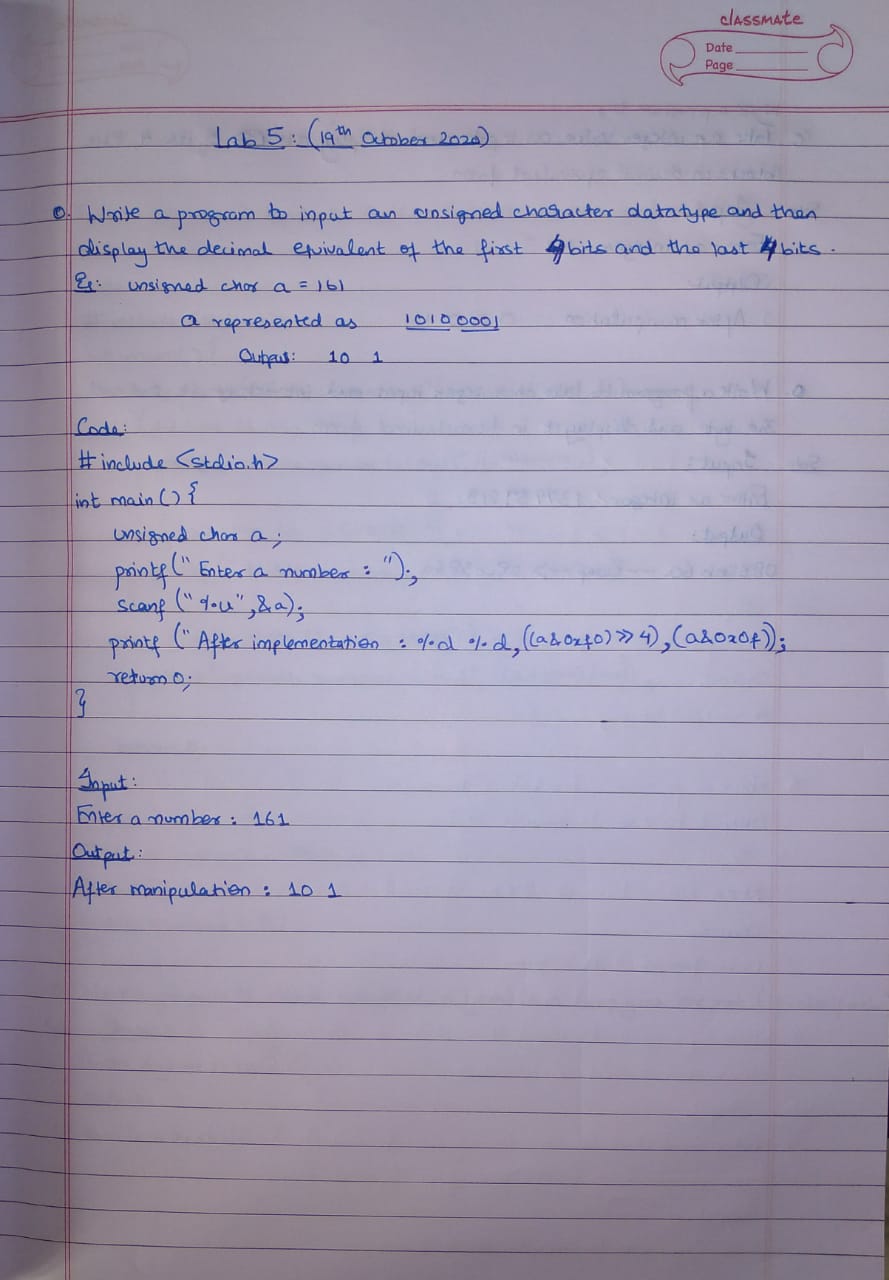 classmate
Date
Page
Lab 5 : (19th October 2020)
Q. Write a program to input an unsigned character datatype and then
display the decimal equivalent of the first 4 bits and the last 4 bits.
Eg: unsigned char a = 161
a represented as 1010 0001
Output: 10 1
Code:
#include <stdio.h>
int main () {
unsigned char a;
printf(" Enter a number : ");
scanf (" %u", &a);
printf (" After implementation : %d %d, ((a&0xf0)>>4), (a&0x0f));
return 0;
}
Input:
Enter a number : 161
Output:
After manipulation : 10 1